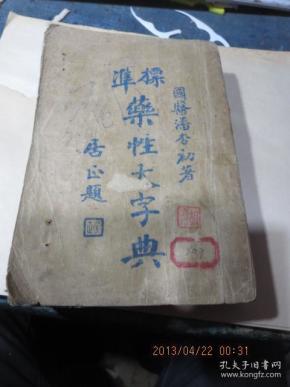 國醫潘杏初著
標準
藥性大字典
居正題
2013/04/22 00:31
孔夫子旧书网